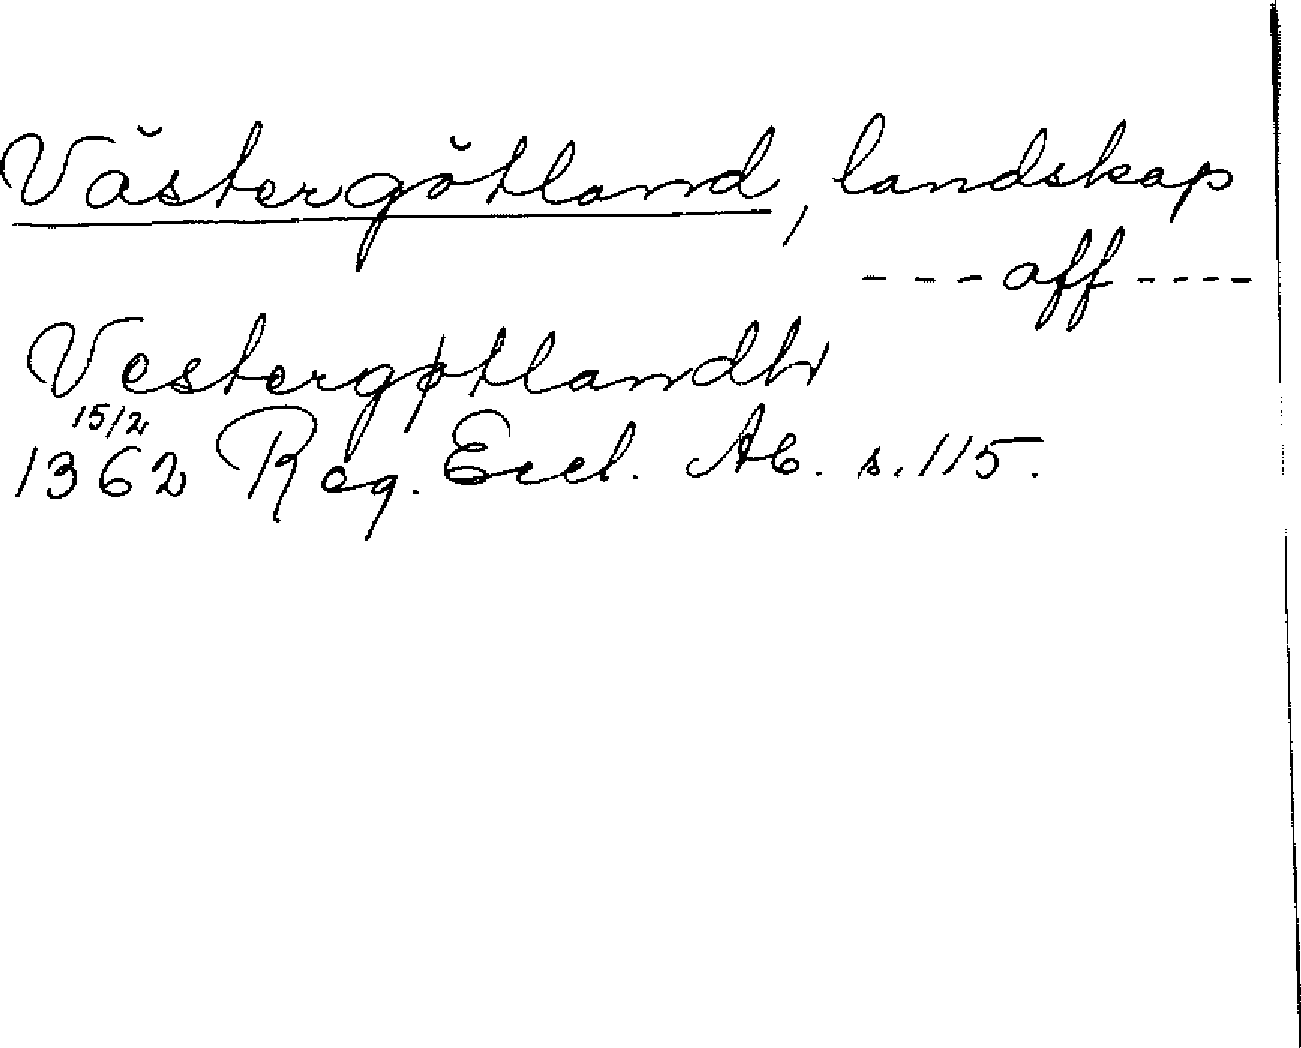 Västergötland, landskap
- - - aff - - - -
Vestergøtlandh
15/2
1362 Reg. Eccl. Ab. s. 115.